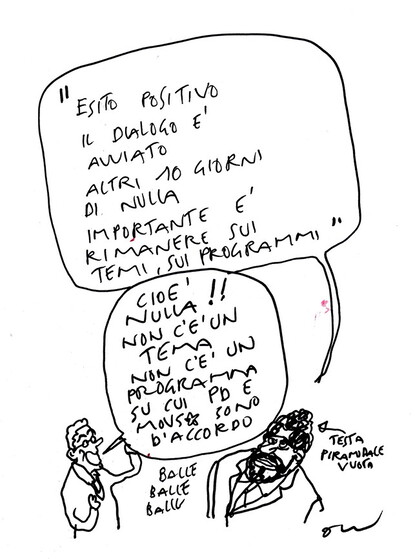 "ESITO POSITIVO
IL DIALOGO E'
AVVIATO
ALTRI 10 GIORNI
DI NULLA
IMPORTANTE E'
RIMANERE SUI
TEMI, SUI PROGRAMMI"
CIOE'
NULLA!!
NON C'E' UN
TEMA
NON C'E' UN
PROGRAMMA
SU CUI PD E
MOV5☆ SONO
D'ACCORDO
TESTA
PIRAMIDALE
VUOTA
BALLE
BALLE
BALLE